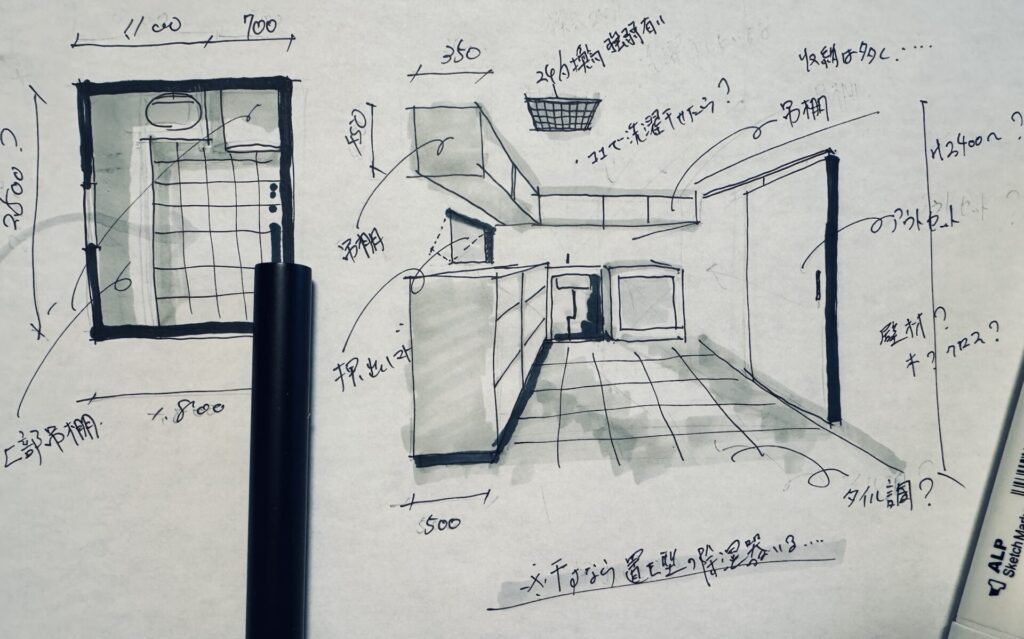 1100
700
2500?
1,800
上部吊棚
350
450
吊棚
押出し窓
500
24h換気 強弱有り
・ココで洗濯干せたら?
吊棚
収納は多く....
H2400〜?
アウトセット
壁材?
木?クロス?
タイル調?
※干すなら置き型の除湿器がいる....
ALP
SketchMark